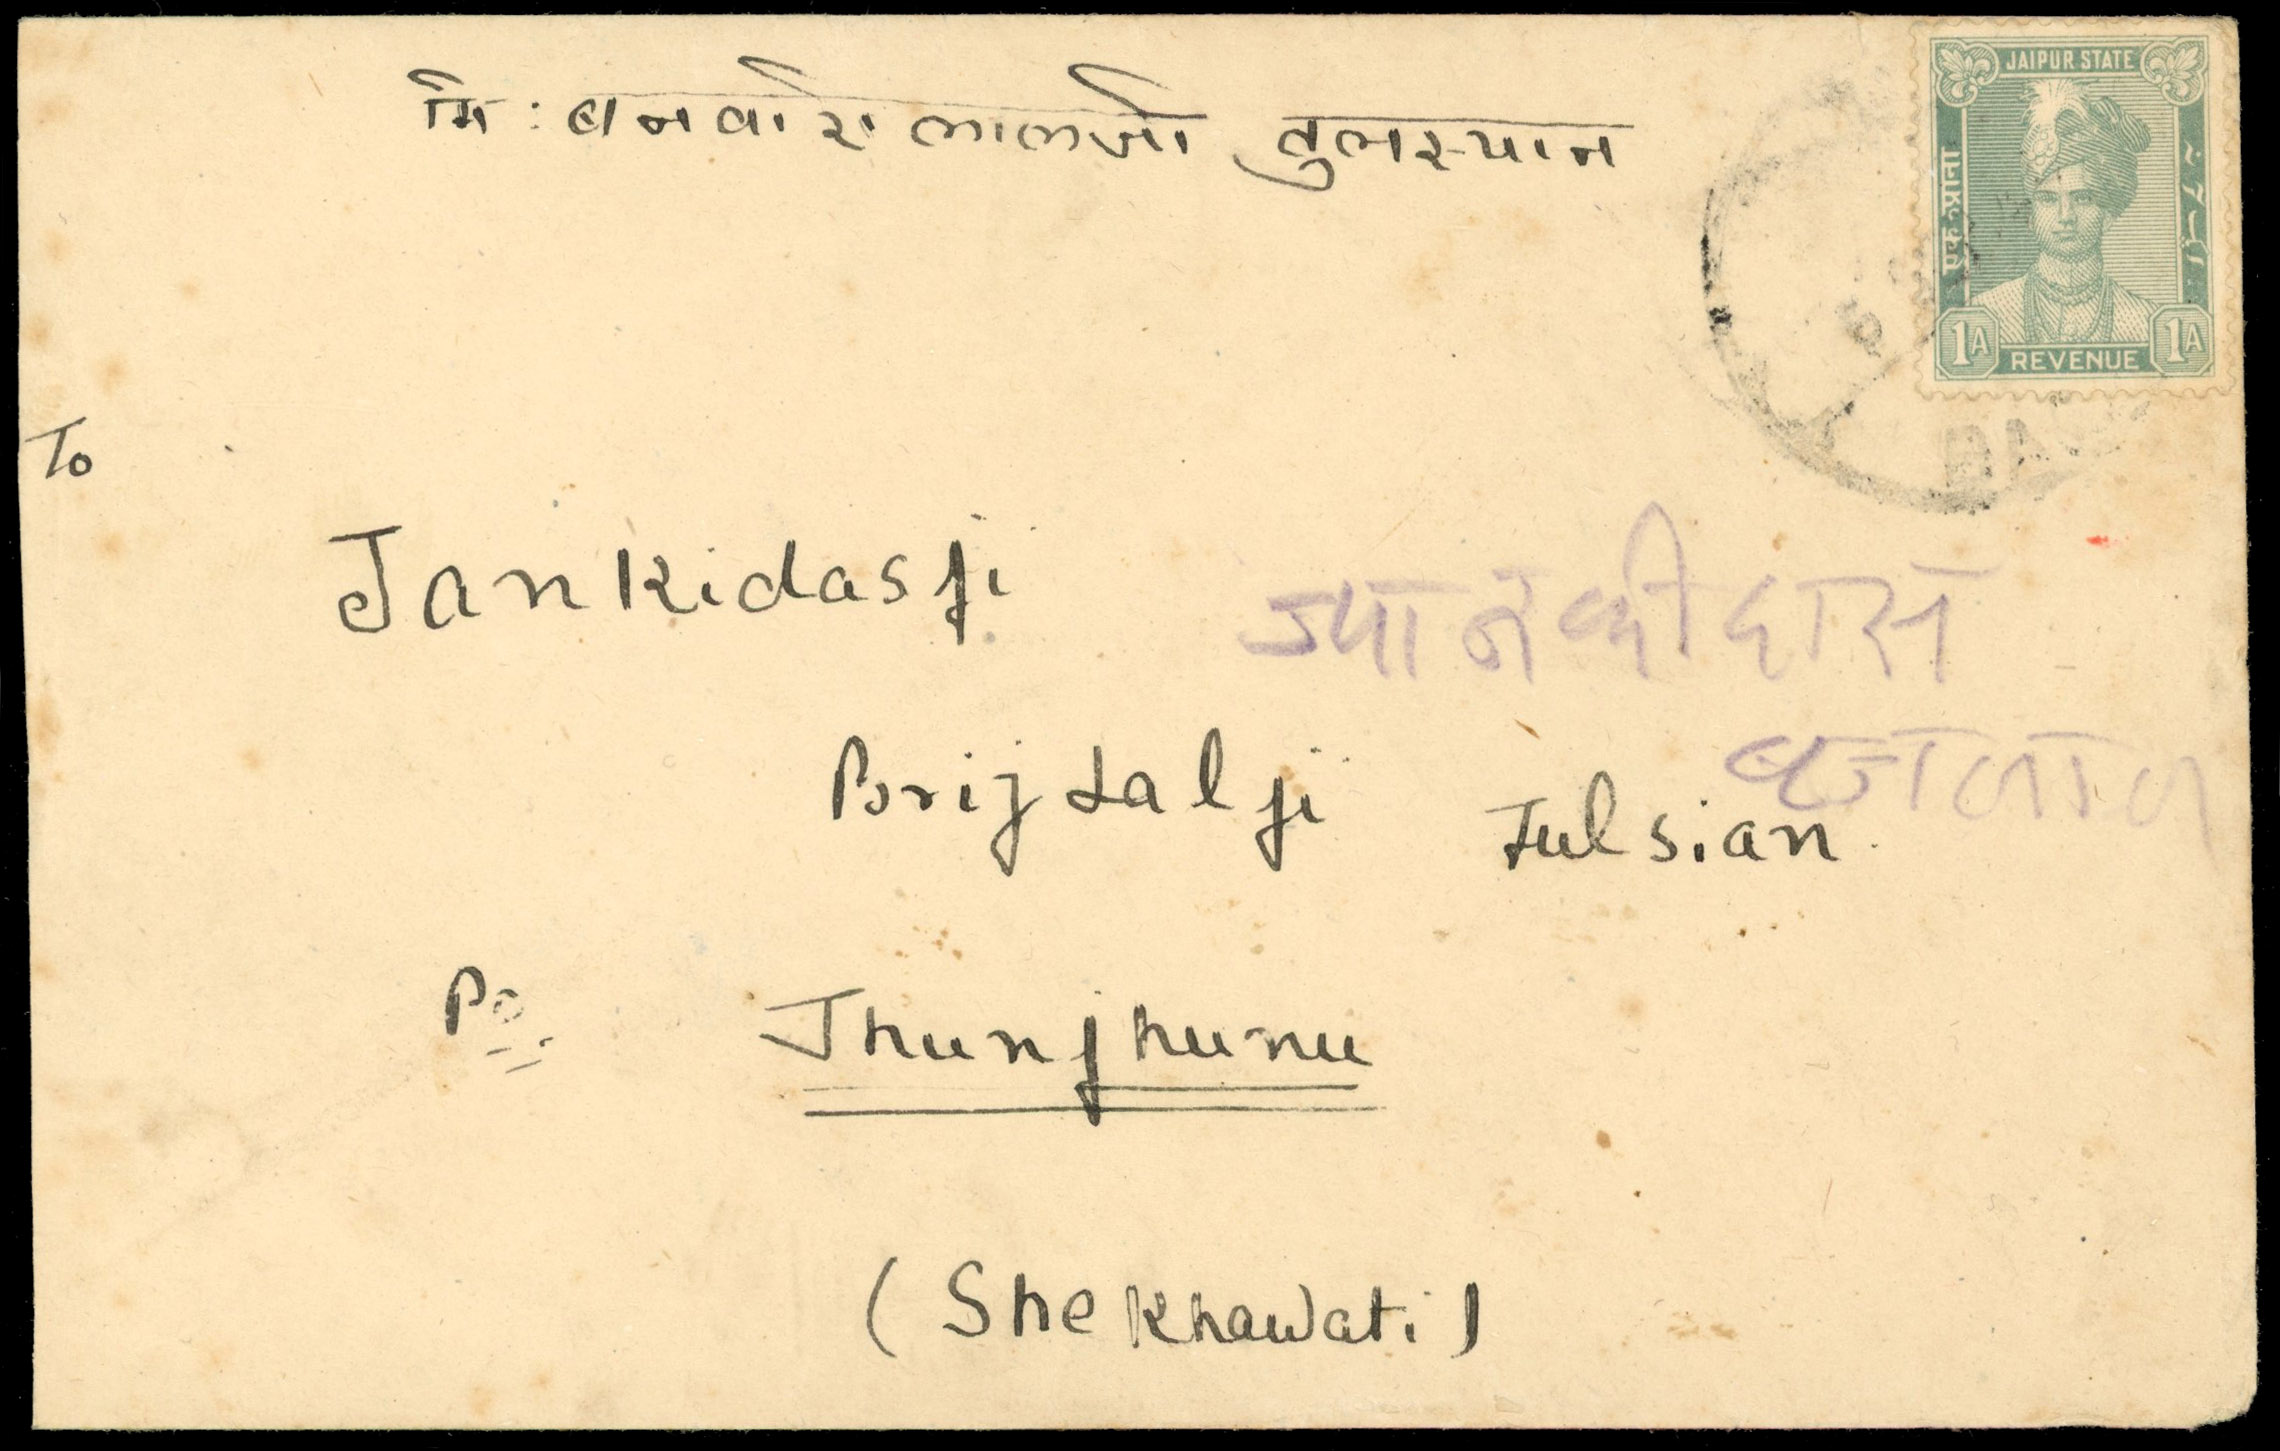 मि: बनवारी लालजी तुलस्यान
JAIPUR STATE
एक आना
1A REVENUE 1A
To
Jankidasji
ज्यानकीदास
Brij Lalji Tulsian
Po.
Jhunjhunu
(Shekhawati)